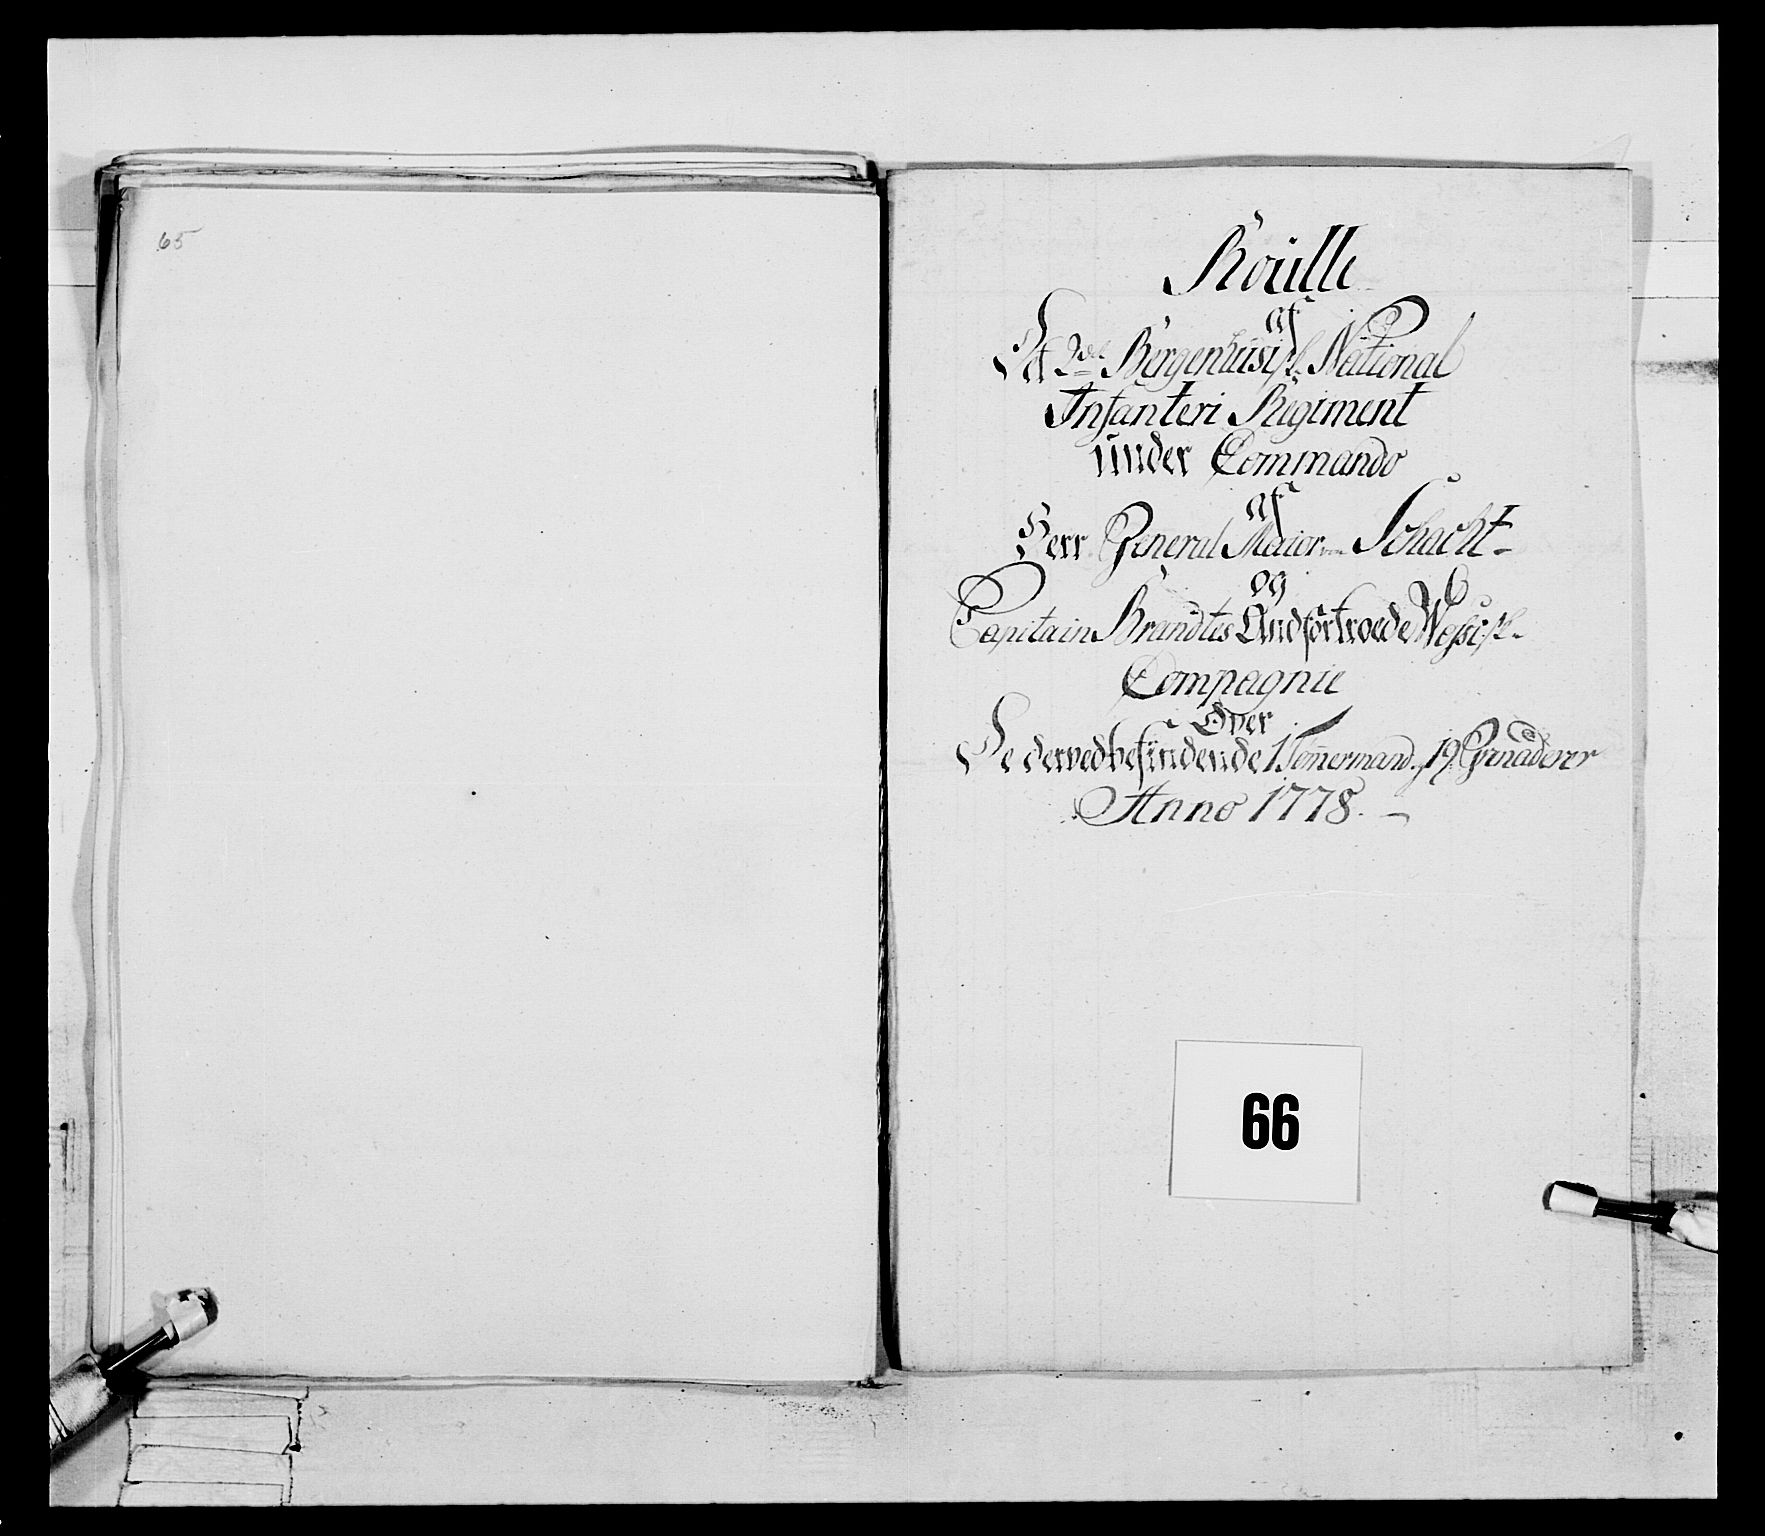 65
Roulle
af
Det 2det Bergenhusisk. National
Infanteri Regiment
under Commando
af
Herr General Maior von Schacht
og
Capitain Brandtes Andfortroede Wossisk.
Compagnie
Over
De derved befindende 1 Tømermand og 19 Grenaderer
Anno 1778.
66